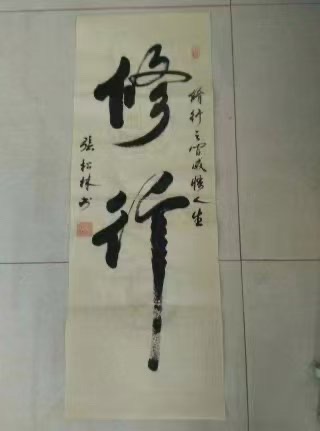 修行
修行之感悟人生
張松林书